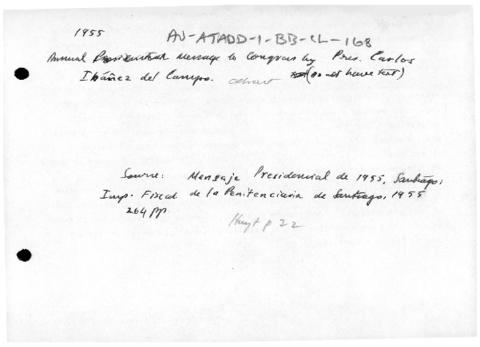 1955
AJ-ATADD-1-BB-CL-168
Annual Presidential Message to Congress by Pres. Carlos
Ibáñez del Campo. (do not have text)
Source: Mensaje Presidencial de 1955, Santiago:
Imp. Fiscal de la Penitenciaria de Santiago, 1955
264 pp
p 22